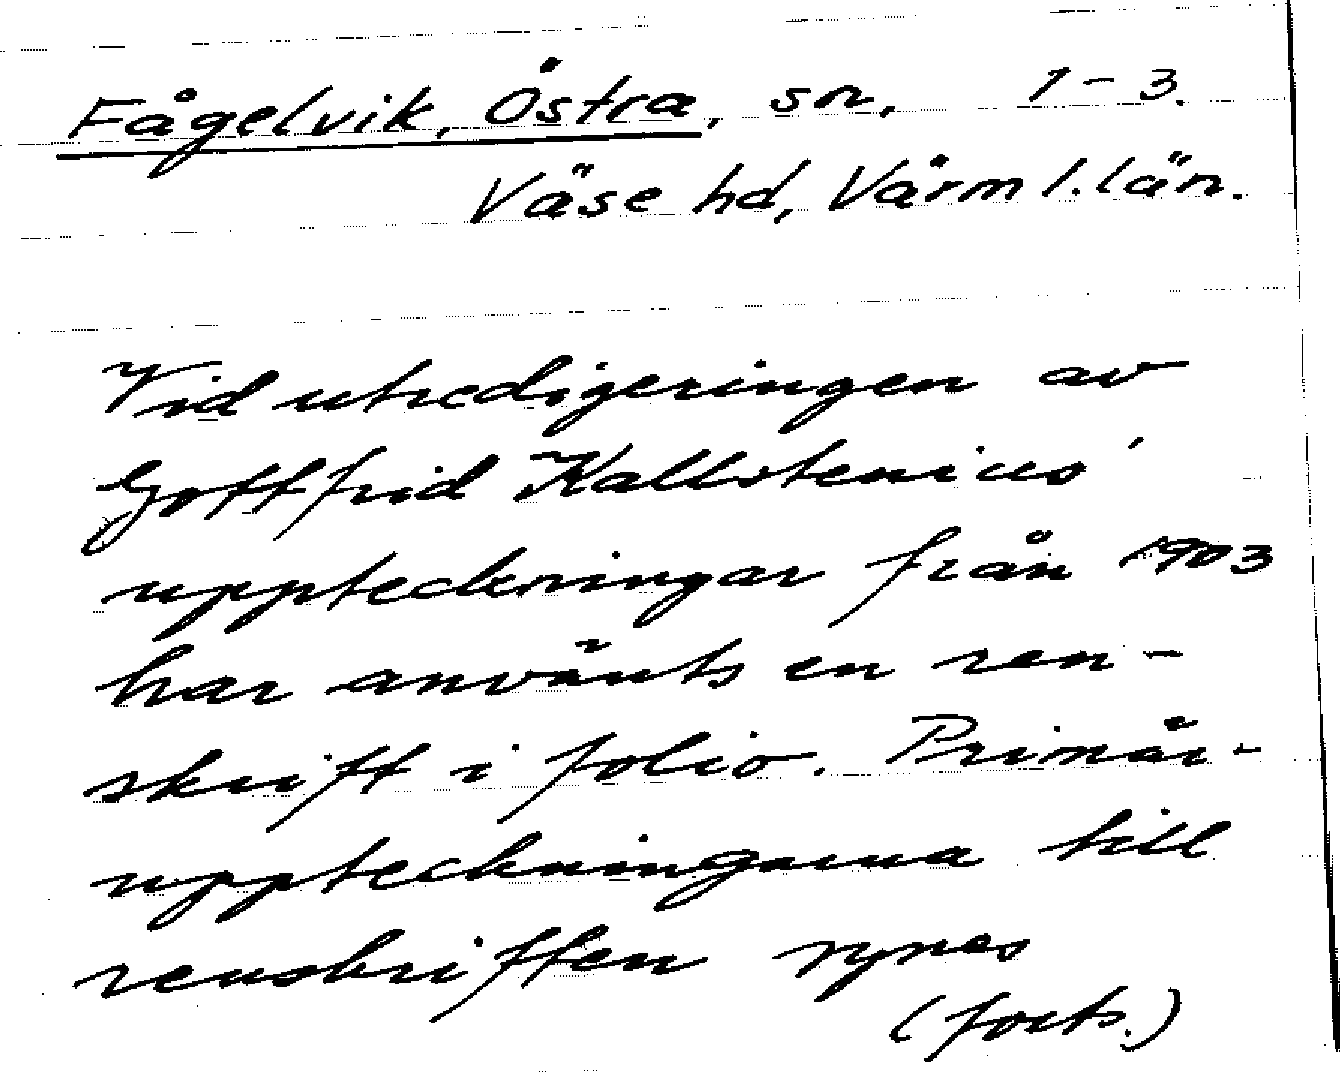 Fågelvik, Östra, sn, 1-3.
Väse hd, Värml. län.
Vid utredigeringen av
Gottfrid Kallstenius'
uppteckningar från 1903
har använts en ren-
skrift i folio. Primär-
uppteckningarna till
renskriften synes
(forts.)